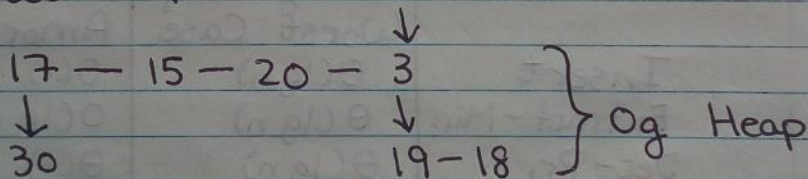 17 — 15 — 20 — 3
30 19 — 18
Og Heap